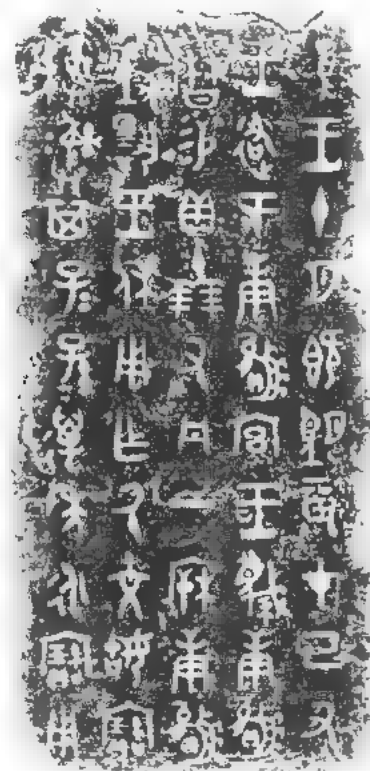 隹王十月既望辰才己丑
王各于庚嬴宮王蔑庚嬴
曆易貝十朋又丹一庚嬴
對揚王休用乍氒文姑寶
尊彝其子子孫孫萬年永寶用